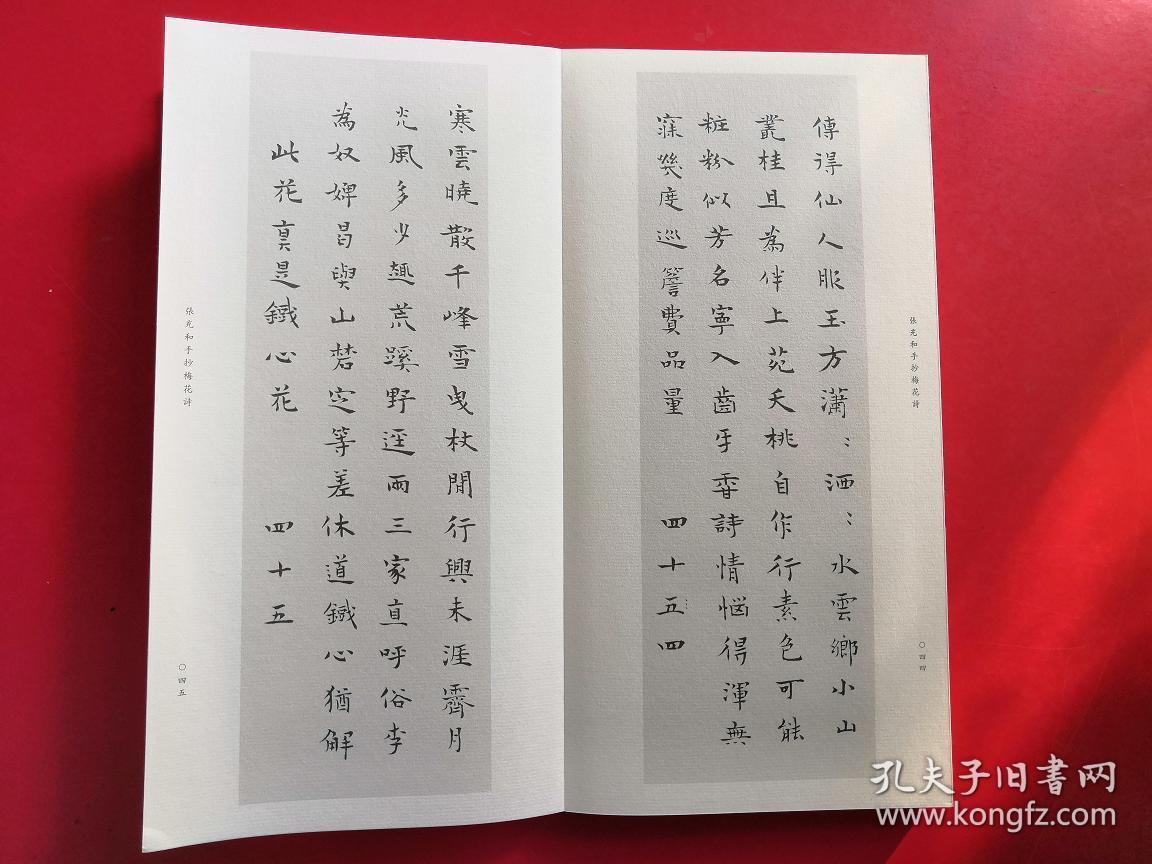 張充和手抄梅花詩
〇四四
傳得仙人服玉方瀟〻洒〻水雲鄉小山
叢桂且為伴上苑夭桃自作行素色可能
粧粉似芳名寧入齒牙香詩情惱得渾無
寐幾度巡簷費品量 四十五四
寒雲曉散千峰雪曳杖閒行興未涯霽月
光風多少趣荒蹊野逕兩三家直呼俗李
為奴婢曷與山礬定等差休道鐵心猶解
此花真是鐵心花 四十五
張充和手抄梅花詩
〇四五
孔夫子旧書网
www.kongfz.com